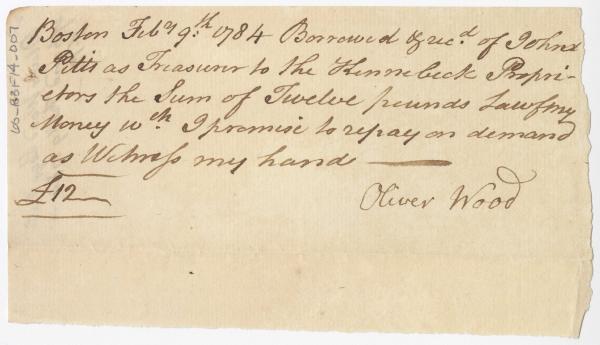 Boston Feby 9th 1784 Borrowed & recd of John
Pitts as Treasurer to the Kennebeck Propri-
etors the Sum of Twelve pounds Lawf my
Money wch I promise to repay on demand
as Witness my hand
£12
Oliver Wood
60-B3F14-007